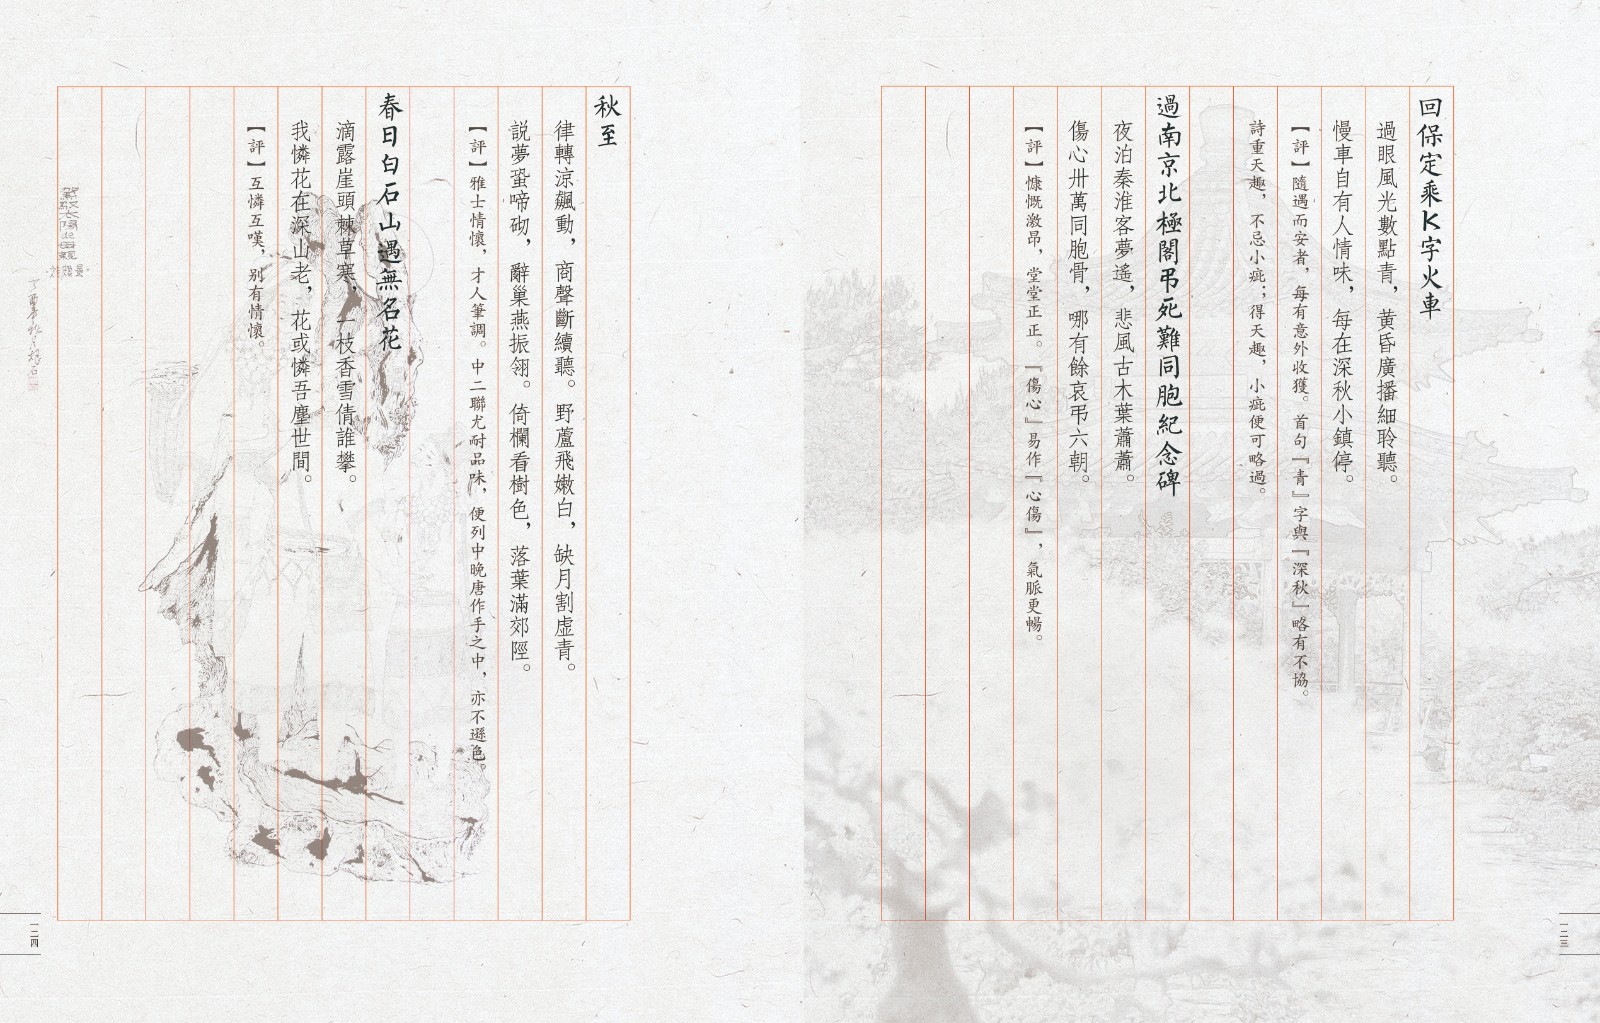 回保定乘K字火車
過眼風光數點青，黃昏廣播細聆聽。
慢車自有人情味，每在深秋小鎮停。
【評】隨遇而安者，每有意外收獲。首句『青』字與『深秋』略有不協。
詩重天趣，不忌小疵；得天趣，小疵便可略過。
過南京北極閣弔死難同胞紀念碑
夜泊秦淮客夢遙，悲風古木葉蕭蕭。
傷心卅萬同胞骨，哪有餘哀弔六朝。
【評】慷慨激昂，堂堂正正。『傷心』易作『心傷』，氣脈更暢。
一二三
秋至
律轉涼飆動，商聲斷續聽。野蘆飛嫩白，缺月割虛青。
説夢蛩啼砌，辭巢燕振翎。倚欄看樹色，落葉滿郊陘。
【評】雅士情懷，才人筆調。中二聯尤耐品味，便列中晚唐作手之中，亦不遜色。
春日白石山遇無名花
滴露崖頭棘草寒，一枝香雪倩誰攀。
我憐花在深山老，花或憐吾塵世間。
【評】互憐互嘆，別有情懷。
一二四